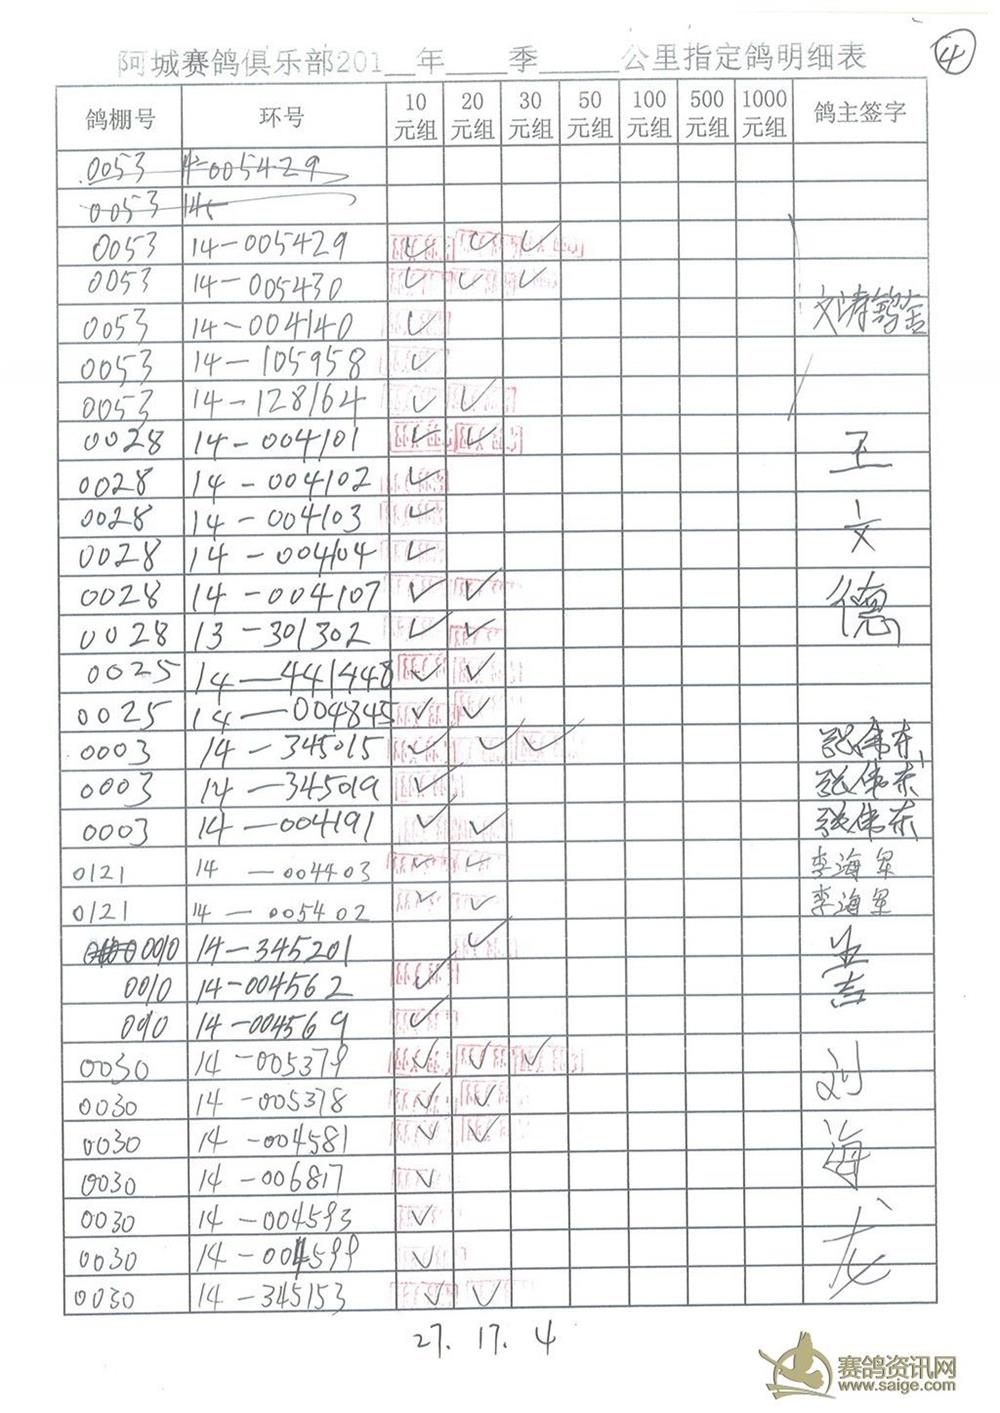 ④
阿城赛鸽俱乐部201__年____季_____公里指定鸽明细表
鸽棚号 环号 10元组 20元组 30元组 50元组 100元组 500元组 1000元组 鸽主签字
0053 14-005429
0053 14
0053 14-005429 ✓ ✓ ✓
0053 14-005430 ✓ ✓ ✓
0053 14-004140 ✓ 文涛鸽舍
0053 14-105958 ✓
0053 14-128164 ✓ ✓
0028 14-004101 ✓ ✓ 王
0028 14-004102 ✓
0028 14-004103 ✓ 文
0028 14-004104 ✓
0028 14-004107 ✓ ✓ 德
0028 13-301302 ✓ ✓
0025 14-441448 ✓ ✓
0025 14-004845 ✓ ✓
0003 14-345015 ✓ ✓ ✓ 张伟东
0003 14-345019 ✓ 张伟东
0003 14-004191 ✓ ✓ 张伟东
0121 14-004403 ✓ ✓ 李海军
0121 14-005402 ✓ ✓ 李海军
0010 14-345201 ✓
0010 14-004562 ✓ 吉
010 14-004569 ✓
0030 14-005379 ✓ ✓ ✓ 刘
0030 14-005378 ✓ ✓
0030 14-004581 ✓ ✓ 海
0030 14-006817 ✓
0030 14-004593 ✓
0030 14-004599 ✓ 龙
0030 14-345153 ✓ ✓
27. 17. 4
赛鸽资讯网
www.saige.com